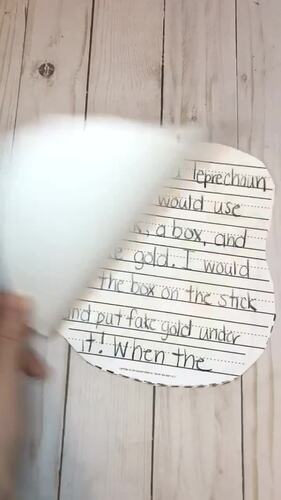 leprechaun
would use
, a box, and
gold. I would
the box on the stick
and put fake gold under
it! When the